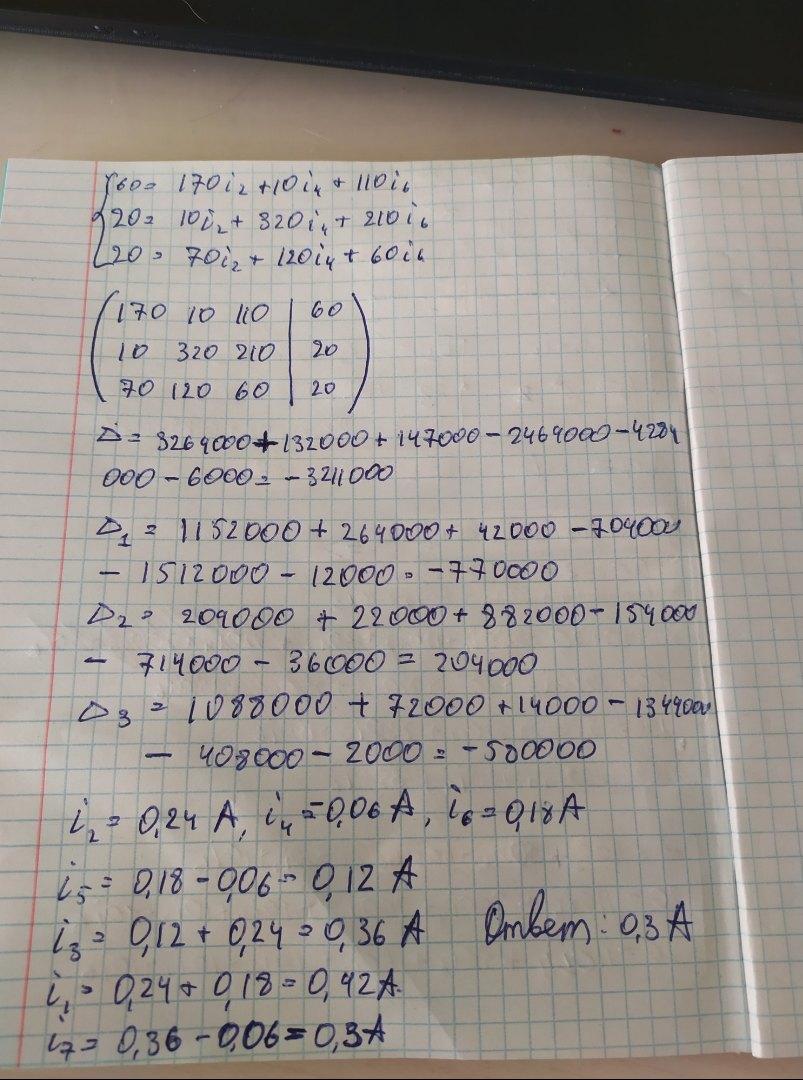 {60 = 170i₂ + 10i₄ + 110i₆
20 = 10i₂ + 320i₄ + 210i₆
20 = 70i₂ + 120i₄ + 60i₆
(170 10 110 | 60)
10 320 210 | 20
70 120 60 | 20
Δ = 3264000 + 132000 + 147000 - 2464000 - 4284
000 - 6000 = - 3211000
Δ₁ = 1152000 + 264000 + 42000 - 704000
- 1512000 - 12000 = -770000
Δ₂ = 204000 + 22000 + 882000 - 154000
- 714000 - 36000 = 204000
Δ₃ = 1088000 + 72000 + 14000 - 1344000
- 408000 - 2000 = -580000
i₂ = 0,24 A, i₄ = -0,06 A, i₆ = 0,18 A
i₅ = 0,18 - 0,06 = 0,12 A
i₃ = 0,12 + 0,24 = 0,36 A Ответ: 0,3 A
i₁ = 0,24 + 0,18 = 0,42 A.
i₇ = 0,36 - 0,06 = 0,3 A